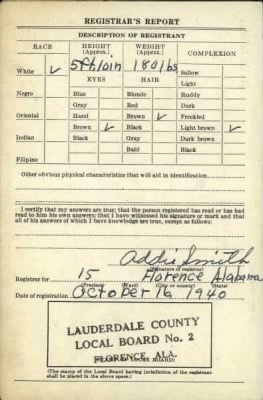 REGISTRAR'S REPORT
DESCRIPTION OF REGISTRANT
RACE HEIGHT (Approx.) WEIGHT (Approx.) COMPLEXION
White ✓ 5ft 10in 180 lbs Sallow
EYES HAIR Light
Negro Blue Blonde Ruddy
Gray Red Dark
Oriental Hazel Brown ✓ Freckled
Brown ✓ Black Light brown ✓
Indian Black Gray Dark brown
Bald Black
Filipino
Other obvious physical characteristics that will aid in identification
I certify that my answers are true; that the person registered has read or has had
read to him his own answers; that I have witnessed his signature or mark and that
all of his answers of which I have knowledge are true, except as follows:
Addie Smith
(Signature of registrar)
Registrar for 15 Florence Alabama
(Precinct) (Ward) (City or county) (State)
Date of registration October 16, 1940
LAUDERDALE COUNTY
LOCAL BOARD No. 2
FLORENCE, ALA.
(The stamp of the Local Board having jurisdiction of the registrant
shall be placed in the above space.)